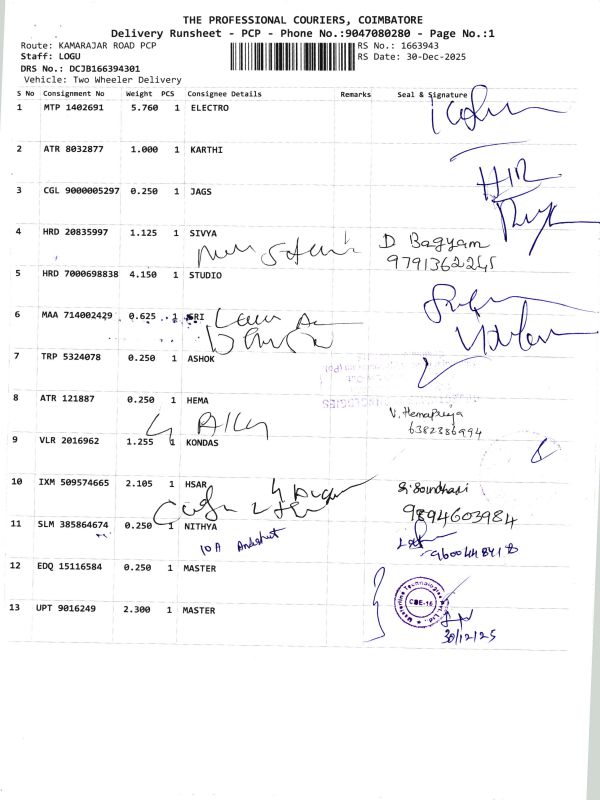 THE PROFESSIONAL COURIERS, COIMBATORE
Delivery Runsheet - PCP - Phone No.:9047080280 - Page No.:1
Route: KAMARAJAR ROAD PCP
RS No.: 1663943
Staff: LOGU
RS Date: 30-Dec-2025
DRS No.: DCJB166394301
Vehicle: Two Wheeler Delivery
S No Consignment No Weight PCS Consignee Details Remarks Seal & Signature
1 MTP 1402691 5.760 1 ELECTRO
2 ATR 8032877 1.000 1 KARTHI
3 CGL 9000005297 0.250 1 JAGS
4 HRD 20835997 1.125 1 SIVYA
D Bagyam
9791362245
5 HRD 7000698838 4.150 1 STUDIO
6 MAA 714002429 0.625 1 SRI
7 TRP 5324078 0.250 1 ASHOK
8 ATR 121887 0.250 1 HEMA
V. Hemapriya
6382386994
9 VLR 2016962 1.255 1 KONDAS
10 IXM 509574665 2.105 1 HSAR
9894603984
11 SLM 385864674 0.250 1 NITHYA
10A
12 EDQ 15116584 0.250 1 MASTER
CBE-16
13 UPT 9016249 2.300 1 MASTER
30/12/25